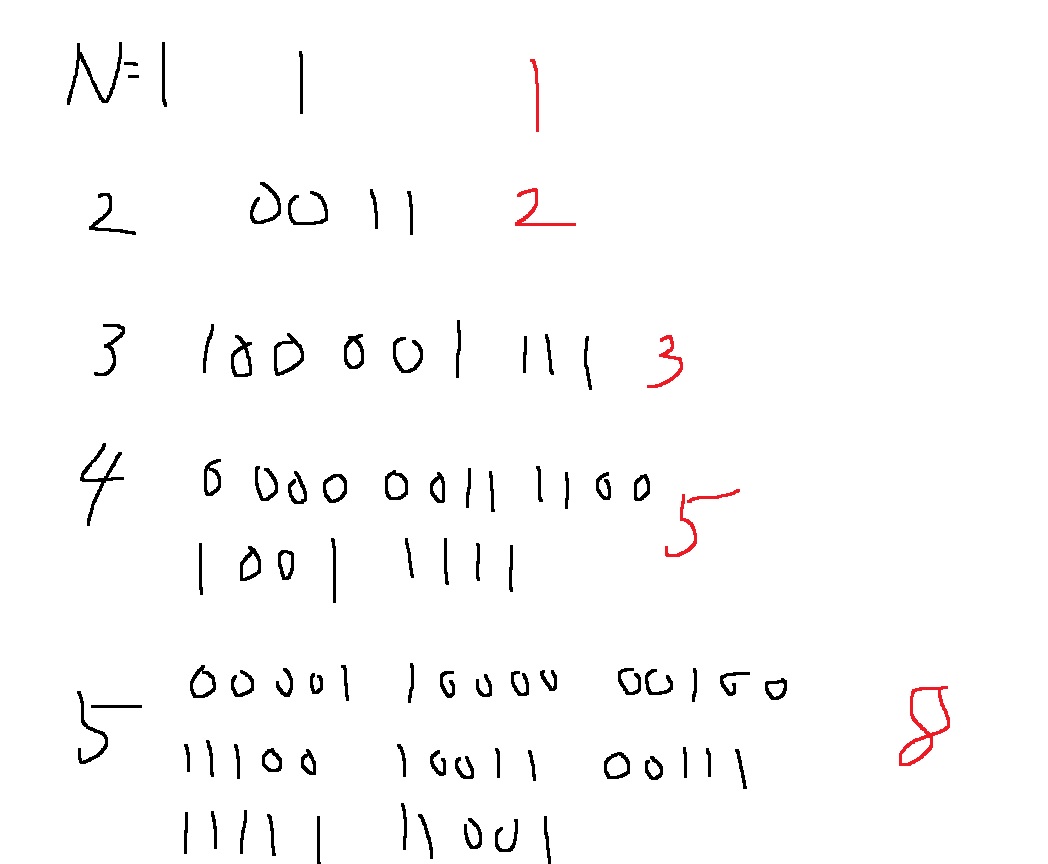 N=1 1 1
2 00 11 2
3 100 001 111 3
4 0000 0011 1100 5
1001 1111
5 00001 10000 00100
11100 10011 00111 8
11111 11001